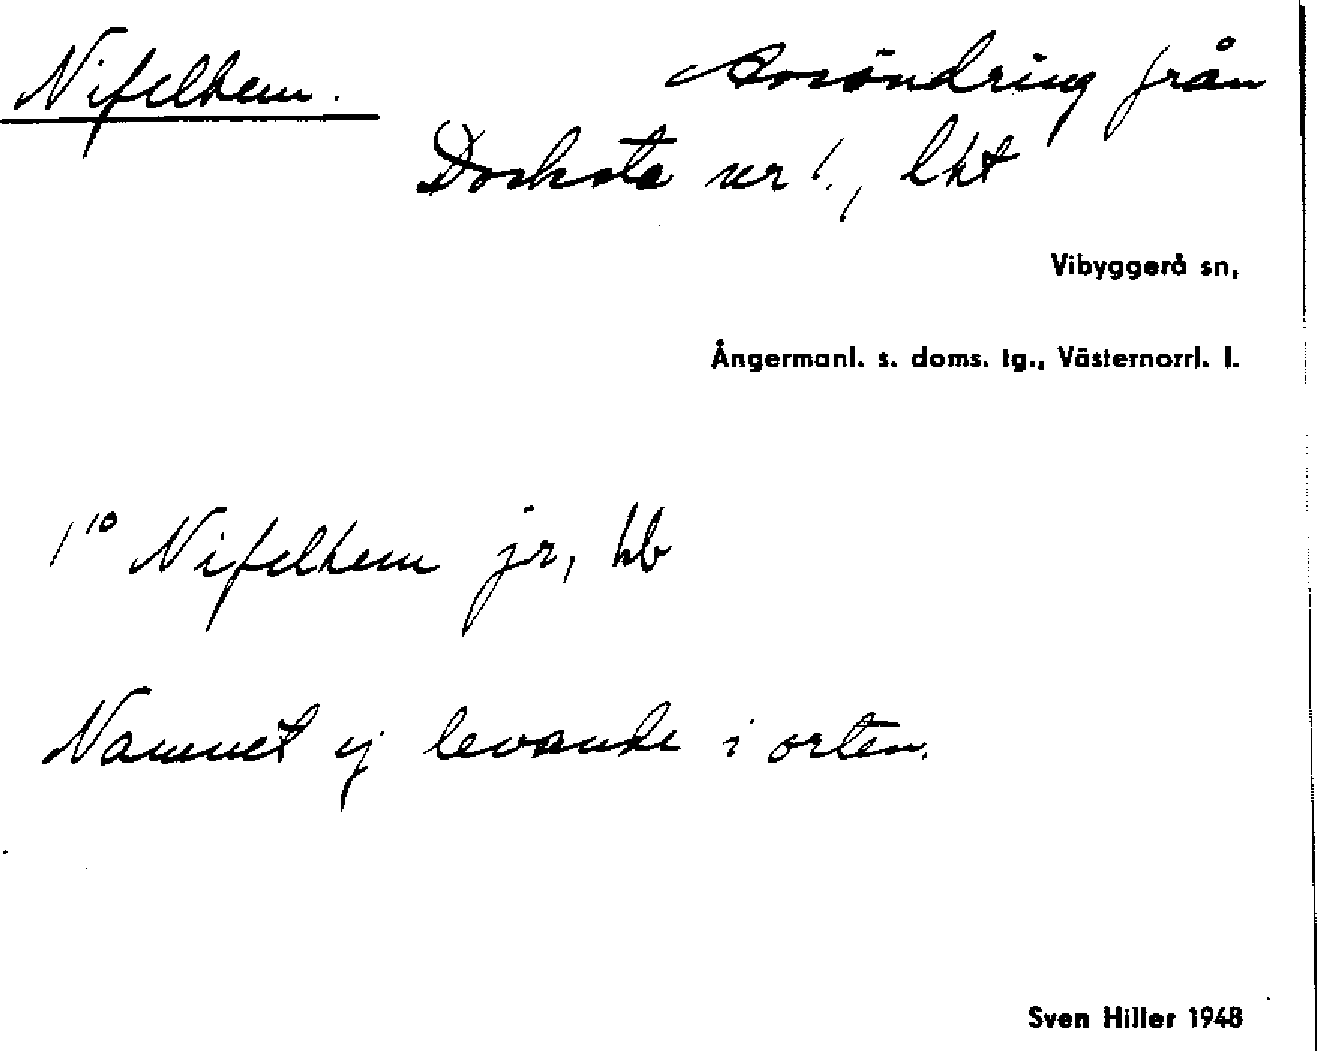 Nifelhem. Avsöndring från
Docksta nr 1, lht
Vibyggerå sn,
Ångermanl. s. doms. tg., Västernorrl. l.
1¹⁰ Nifelhem jr, hb
Namnet ej levande i orten.
Sven Hiller 1948